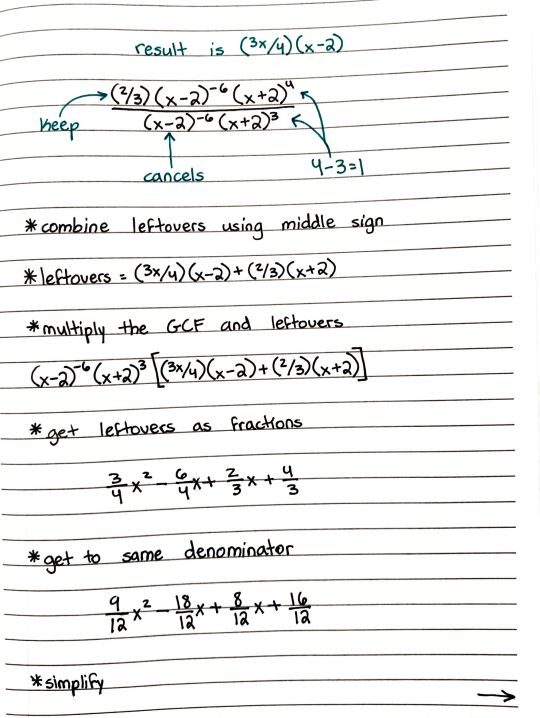 result is (3x/4)(x-2)
(2/3)(x-2)⁻⁶(x+2)⁴
keep
(x-2)⁻⁶(x+2)³
cancels
4-3=1
*combine leftovers using middle sign
*leftovers = (3x/4)(x-2)+(2/3)(x+2)
*multiply the GCF and leftovers
(x-2)⁻⁶(x+2)³[(3x/4)(x-2)+(2/3)(x+2)]
*get leftovers as fractions
3/4 x² - 6/4 x + 2/3 x + 4/3
*get to same denominator
9/12 x² - 18/12 x + 8/12 x + 16/12
*simplify →